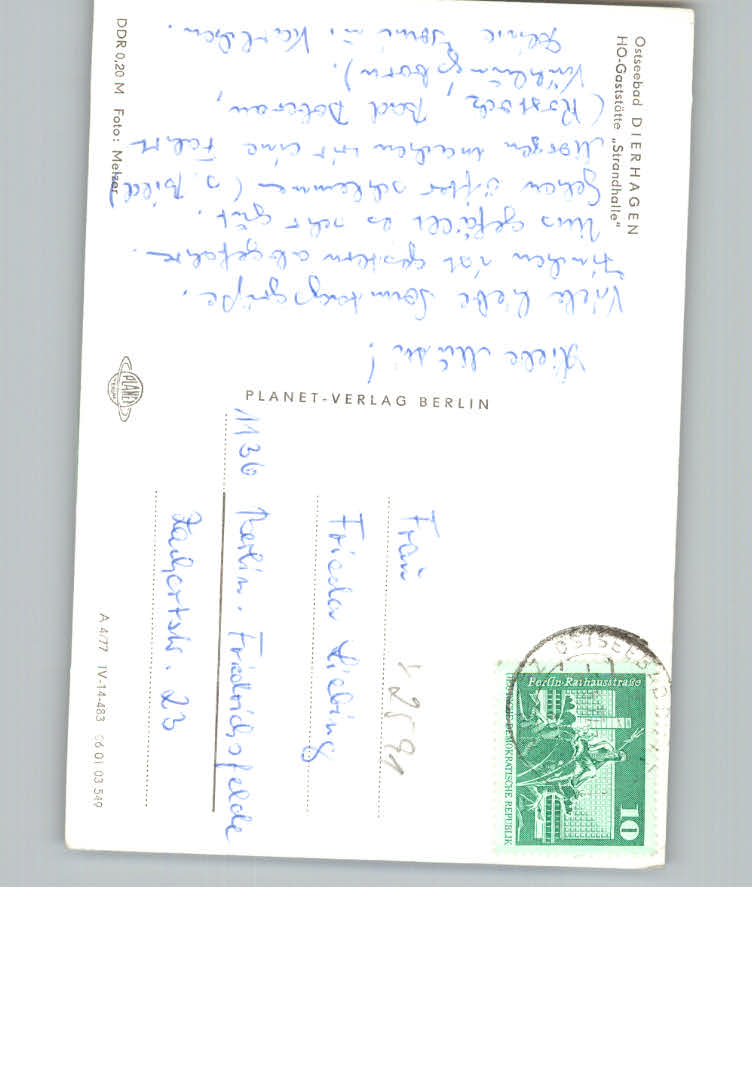 Ostseebad DIERHAGEN
HO-Gaststätte „Strandhalle"
Liebe Mutsi!
Viele liebe Sonntagsgrüße.
sind gestern abgefahren.
Uns gefällt es sehr gut.
Gehen öfter schlemmen (s. Bild)
Morgen machen wir eine Fahrt
(Rostock, Bad Doberan,
Kühlungsborn).
Deine u. Karlchen.
DDR 0,20 M Foto: Melzer
PLANET-VERLAG BERLIN
PLANET
Frau
Frieda Liebing
1136 Berlin-Friedrichsfelde
23
÷ 2591
A 4/77 IV-14-483 06 01 03 549
OSTSEEBAD
Berlin-Rathausstraße
DEUTSCHE DEMOKRATISCHE REPUBLIK
10